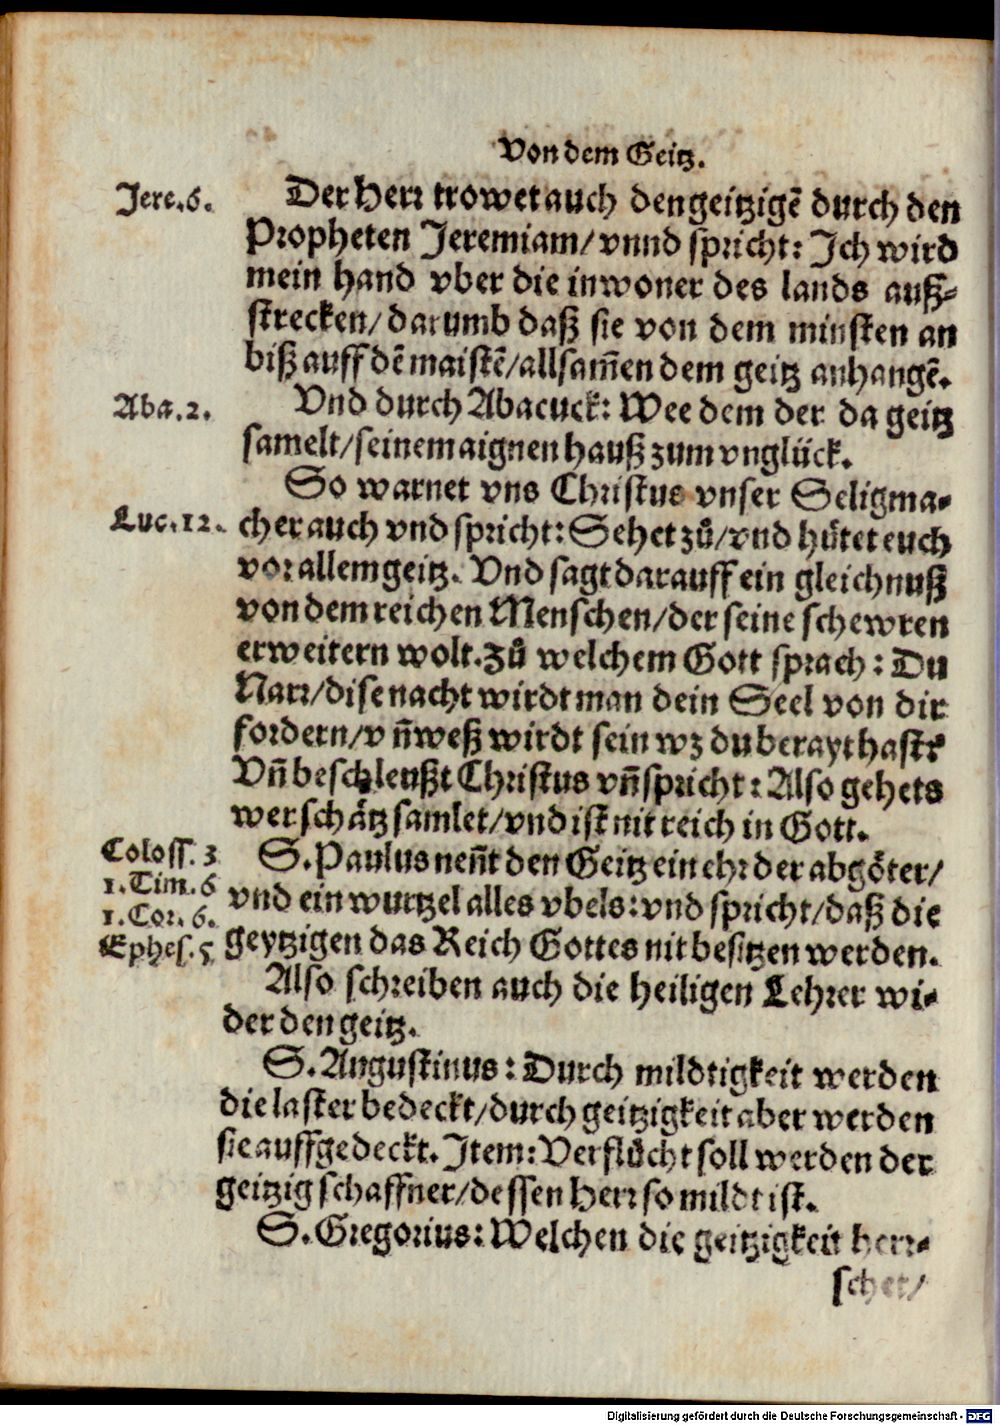 Von dem Geitz.
Jere.6.
Der Herr trowet auch den geitzigẽ durch den
Propheten Jeremiam/ vnnd spricht: Ich wird
mein hand vber die inwoner des lands auß-
strecken/ darumb daß sie von dem minsten an
biß auff dẽ maistẽ/ allsam̃en dem geitz anhangẽ.
Aba.2.
Vnd durch Abacuck: Wee dem der da geitz
samelt/ seinem aignen hauß zum vnglück.
So warnet vns Christus vnser Seligma-
Luc.12.
cher auch vnd spricht: Sehet zů/ vnd hůtet euch
vor allem geitz. Vnd sagt darauff ein gleichnuß
von dem reichen Menschen/ der seine schewren
erweitern wolt. zů welchem Gott sprach: Du
Narr/ dise nacht wirdt man dein Seel von dir
fordern/ vñ weß wirdt sein wz du berayt hast?
Vñ beschleußt Christus vñ spricht: Also gehets
wer schåtz samlet/ vnd ist nit reich in Gott.
Coloss. 3
1.Tim.6
1.Cor.6.
Ephes.5
S. Paulus neñt den Geitz ein ehr der abgöter/
vnd ein wurtzel alles vbels: vnd spricht/ daß die
geytzigen das Reich Gottes nit besitzen werden.
Also schreiben auch die heiligen Lehrer wi-
der den geitz.
S. Augustinus: Durch mildtigkeit werden
die laster bedeckt/ durch geitzigkeit aber werden
sie auffgedeckt. Item: Verflůcht soll werden der
geitzig schaffner/ dessen Herr so mildt ist.
S. Gregorius: Welchen die geitzigkeit herr-
schet/
Digitalisierung gefördert durch die Deutsche Forschungsgemeinschaft - DFG